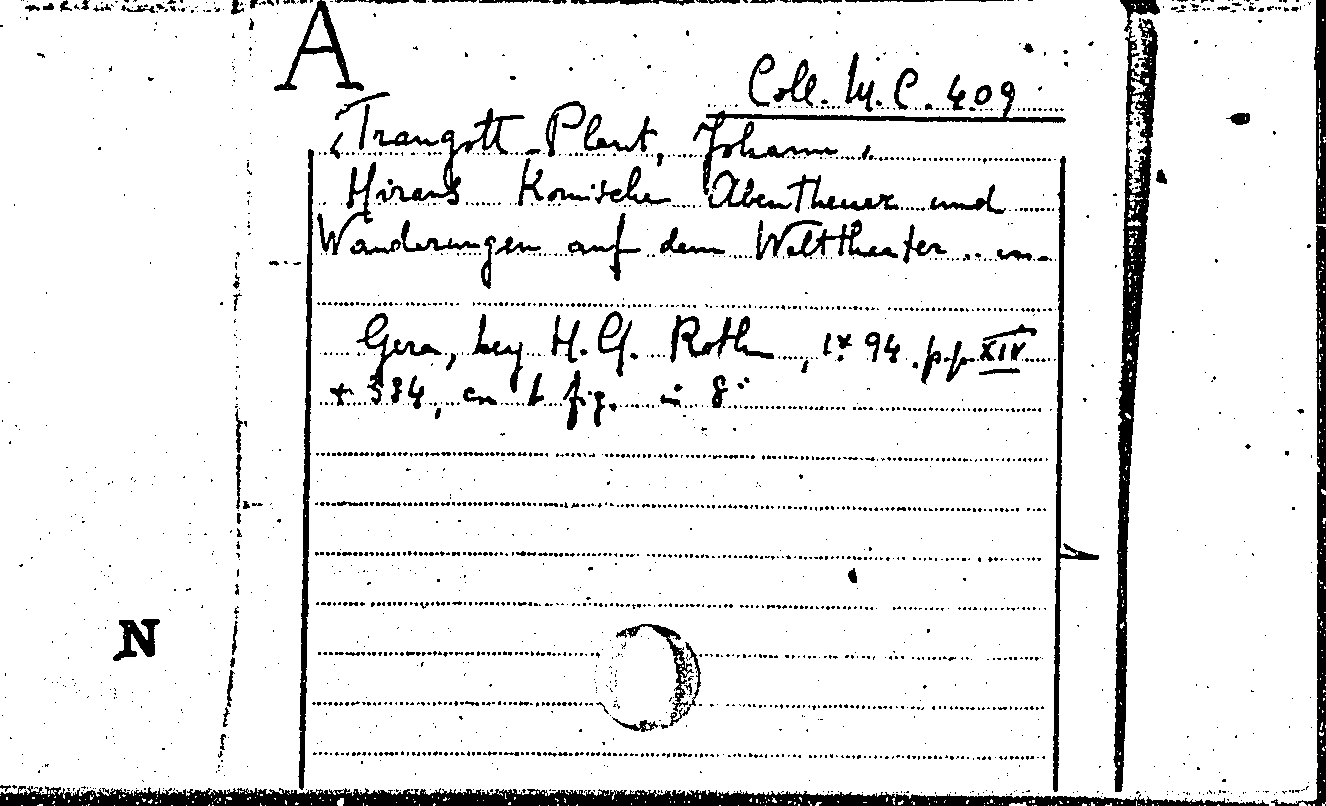 A
Coll. M.C. 409
(Traugott Plant, Johann)
Hirans Komische Abentheuer und
Wanderungen auf dem Welttheater .. 
Gera, bey H.G. Rothe, 1794. pp. XIV
+ 334, in 8°
N